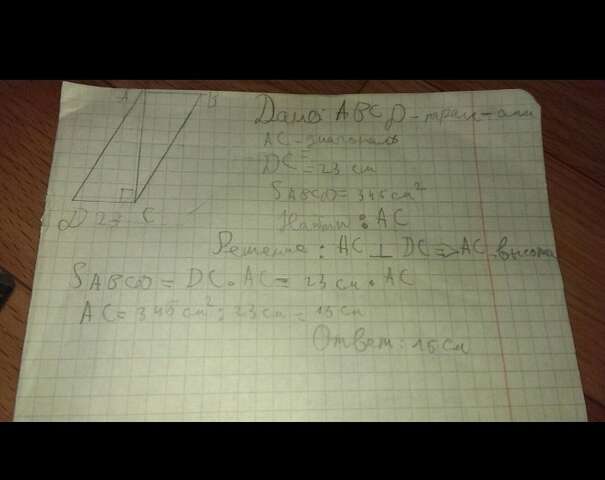 A B
Дано: ABCD-
AC-диагональ
DC = 23 cm
S ABCD = 345 см²
D 23 C
Найти: AC
Решение: AC ⊥ DC => AC высота
S ABCD = DC • AC = 23 см • AC
AC = 345 см² : 23 см = 15 см
Ответ: 15 см